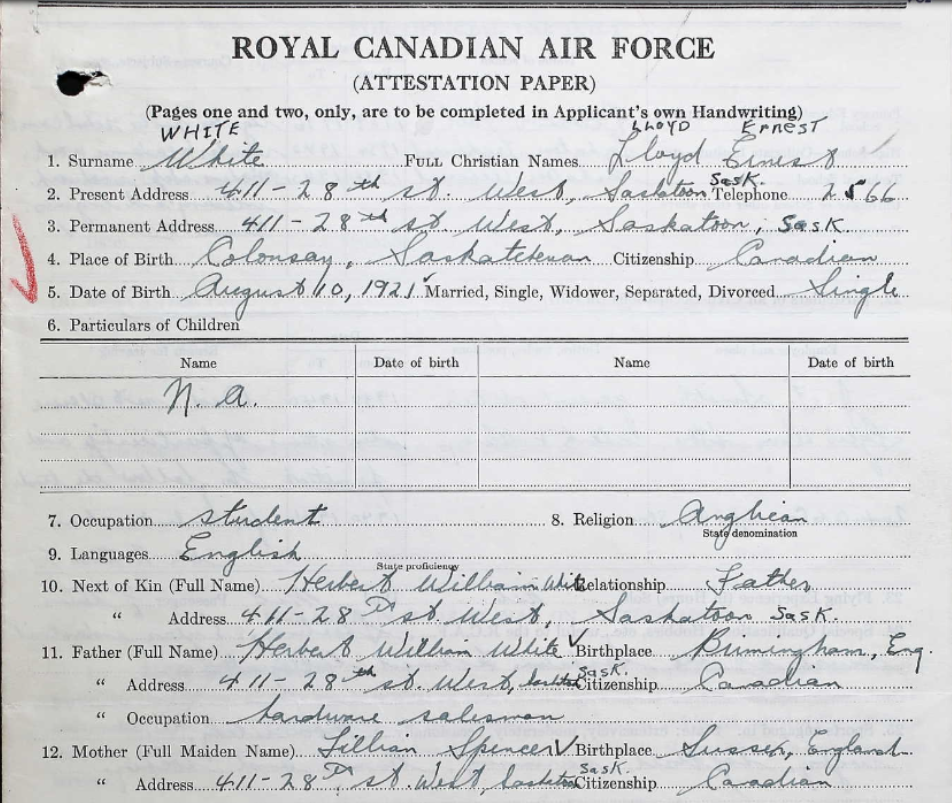 ROYAL CANADIAN AIR FORCE
(ATTESTATION PAPER)
(Pages one and two, only, are to be completed in Applicant's own Handwriting)
WHITE LLOYD ERNEST
1. Surname White FULL Christian Names Lloyd Ernest
2. Present Address 411-28th st. West, Saskatoon Sask. Telephone 2566
3. Permanent Address 411-28th st. West, Saskatoon, Sask.
4. Place of Birth Colonsay, Saskatchewan Citizenship Canadian
5. Date of Birth August 10, 1921 Married, Single, Widower, Separated, Divorced Single
6. Particulars of Children
Name Date of birth Name Date of birth
N. A.
7. Occupation student 8. Religion Anglican
State denomination
9. Languages English
State proficiency
10. Next of Kin (Full Name) Herbert William White Relationship Father
" Address 411-28th st. West, Saskatoon Sask.
11. Father (Full Name) Herbert William White Birthplace Burmingham, Eng.
" Address 411-28th st. West, Saskatoon Sask. Citizenship Canadian
" Occupation hardware salesman
12. Mother (Full Maiden Name) Lillian Spencer Birthplace Sussex, England
" Address 411-28th st West, Saskatoon Sask. Citizenship Canadian